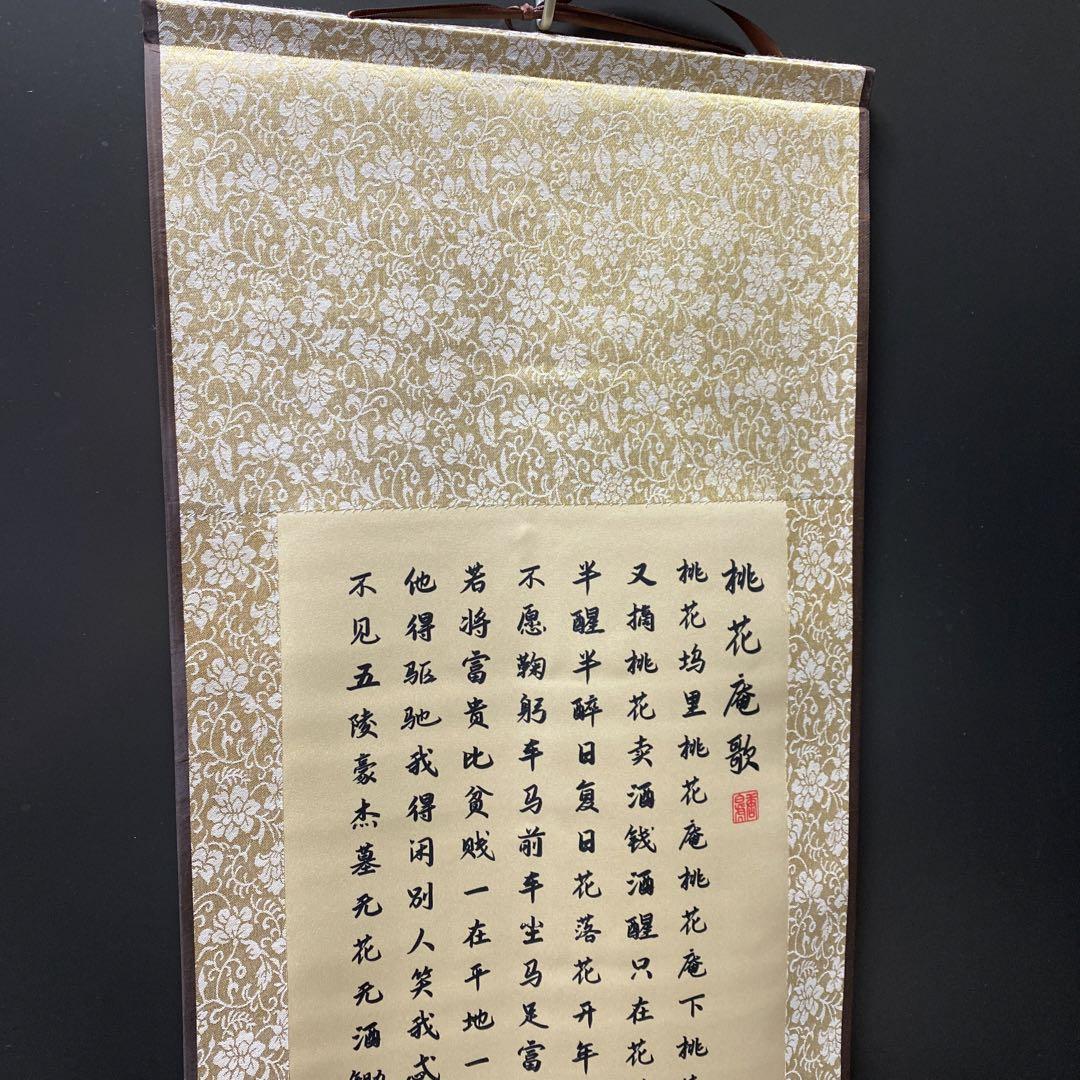 桃花庵歌
桃花坞里桃花庵桃花庵下桃
又摘桃花卖酒钱酒醒只在花
半醒半醉日复日花落花开年
不愿鞠躬车马前车尘马足富
若将富贵比贫贱一在平地一
他得驱驰我得闲别人笑我忒
不见五陵豪杰墓无花无酒锄